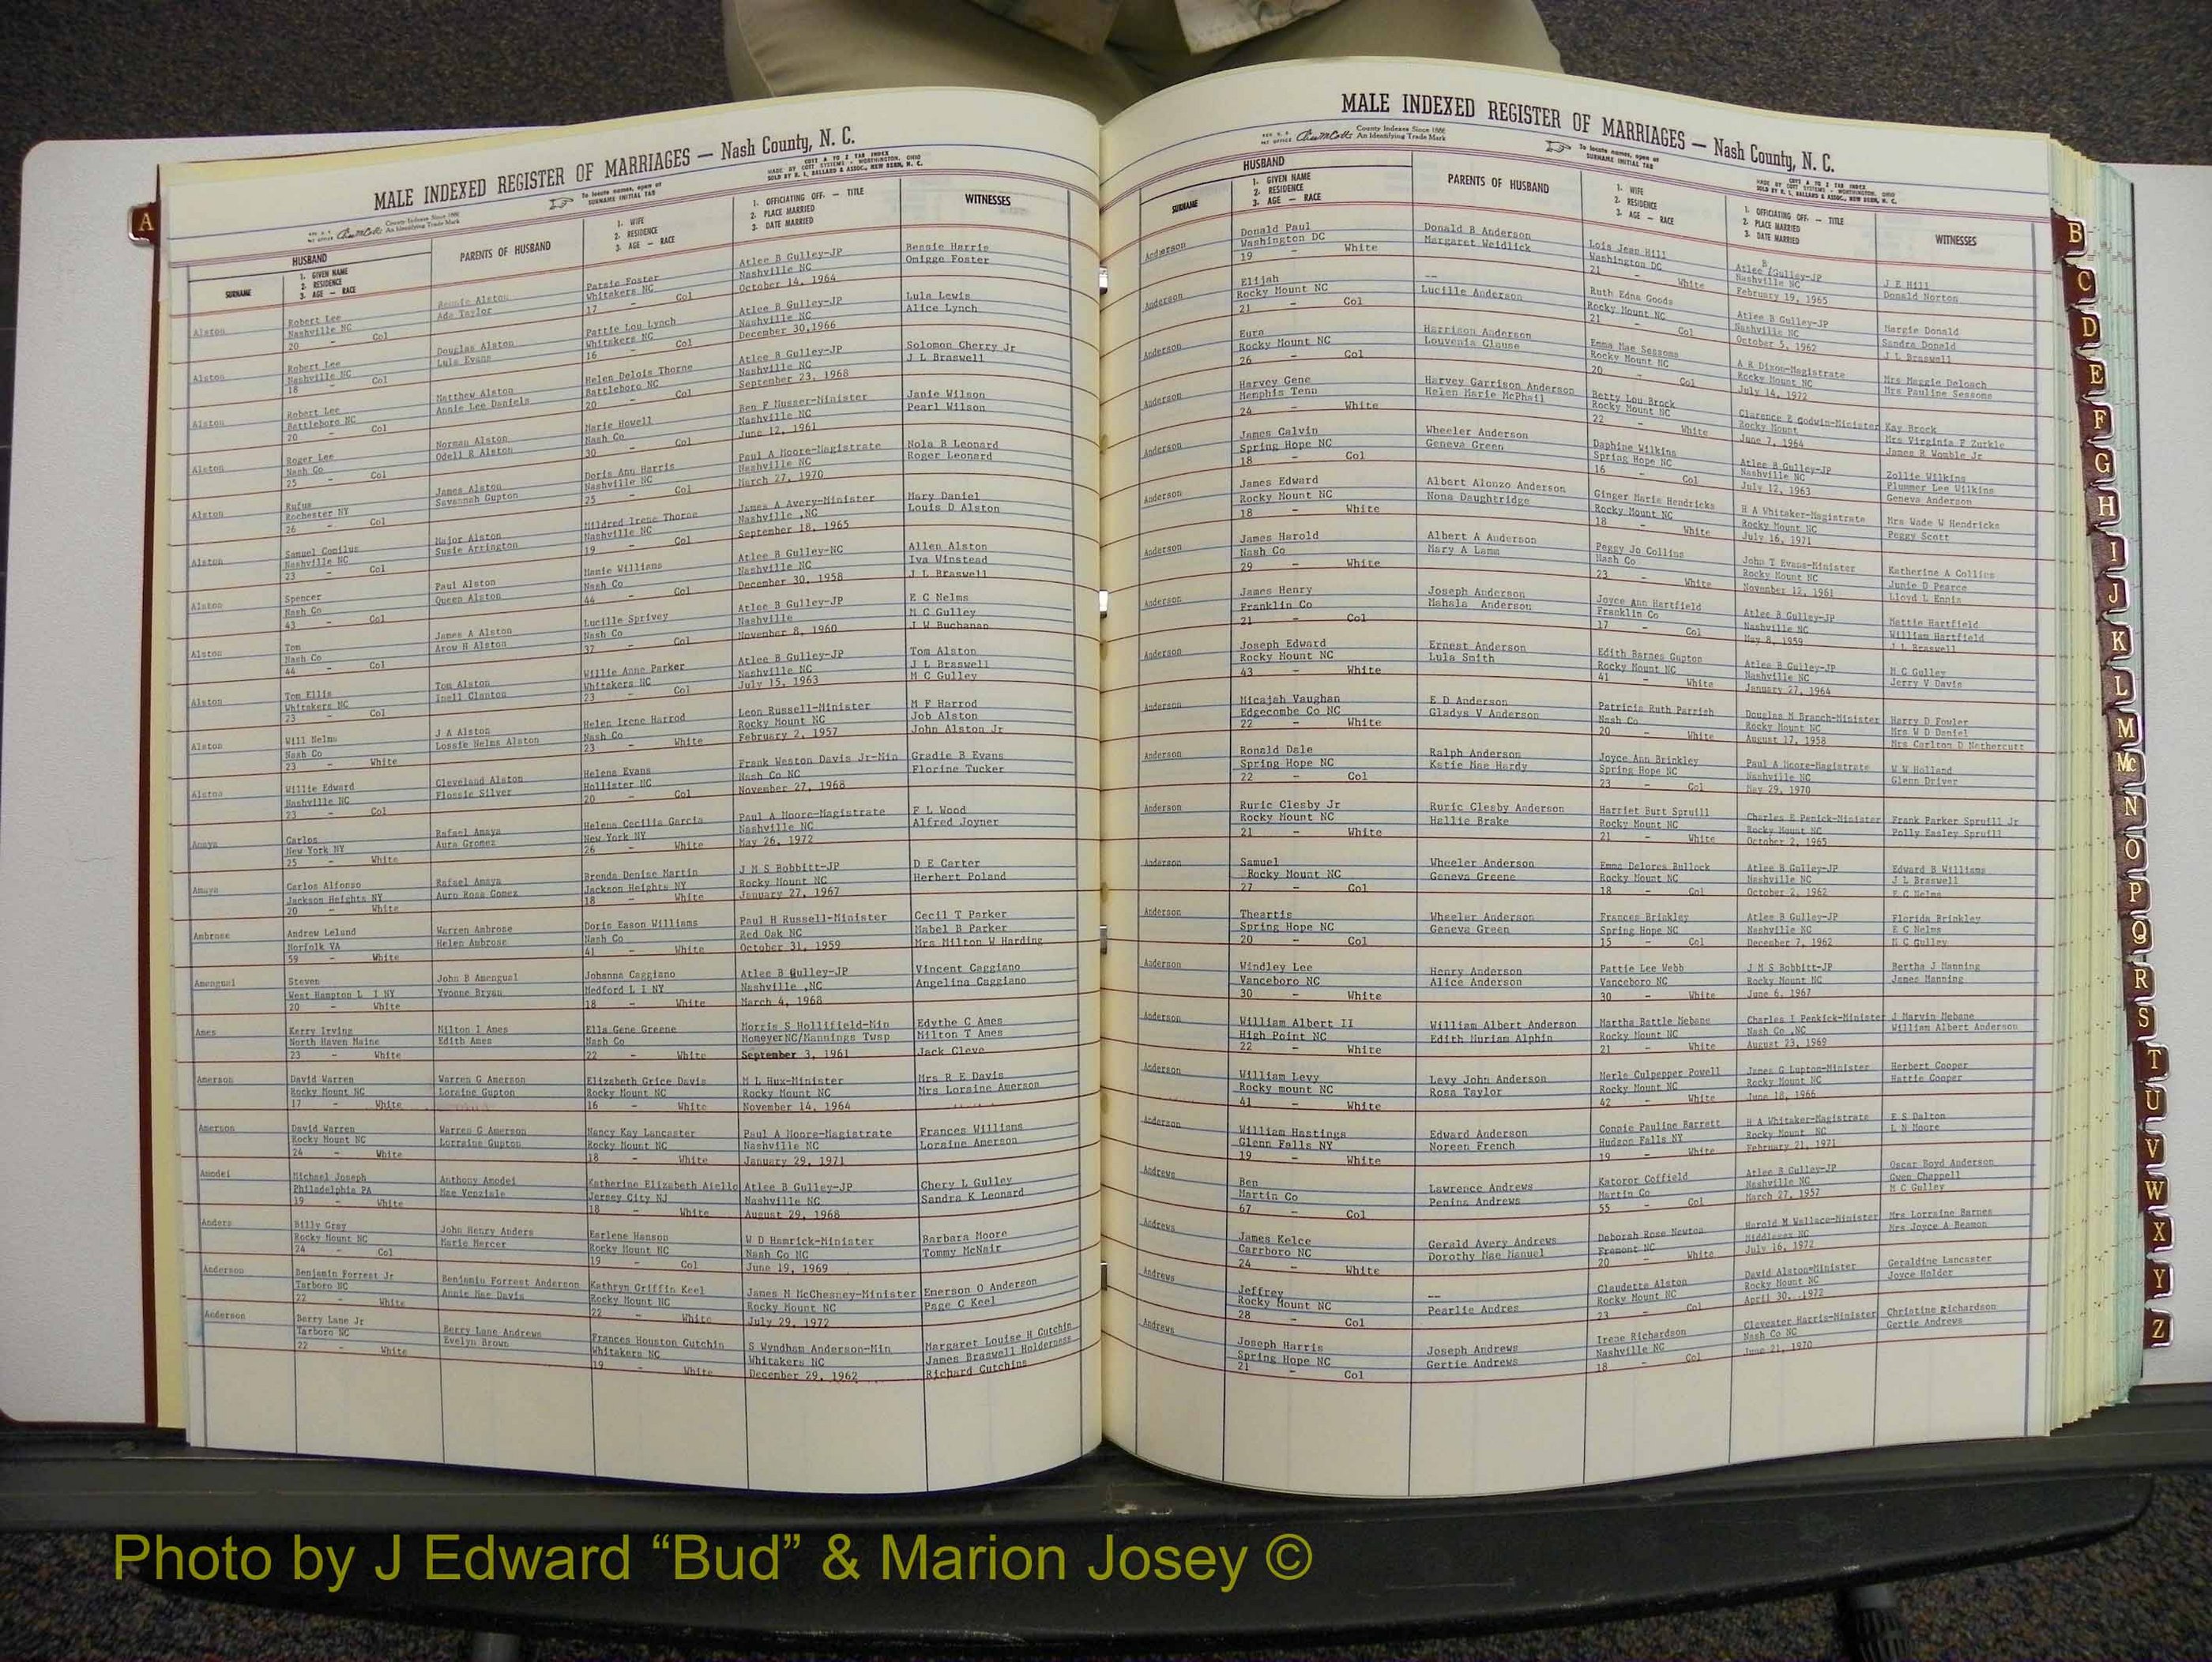 MALE INDEXED REGISTER OF MARRIAGES — Nash County, N. C.
County Indexes Since 1888
An Identifying Trade Mark
To locate names, open at
SURNAME INITIAL TAB
MADE BY COTT SYSTEMS - WORTHINGTON, OHIO
SOLD BY R. L. BALLARD & ASSOC., NEW BERN, N. C.
HUSBAND
SURNAME
1. GIVEN NAME
2. RESIDENCE
3. AGE — RACE
PARENTS OF HUSBAND
1. WIFE
2. RESIDENCE
3. AGE — RACE
1. OFFICIATING OFF. - TITLE
2. PLACE MARRIED
3. DATE MARRIED
WITNESSES
Alston Robert Lee Bennie Alston Patsie Foster Atlee B Gulley-JP Bessie Harris
Nashville NC Ada Taylor Whitakers NC Nashville NC Onigge Foster
20 - Col 17 - Col October 14, 1964
Alston Robert Lee Douglas Alston Pattie Lou Lynch Atlee B Gulley-JP Lula Lewis
Nashville NC Lula Evans Whitakers NC Nashville NC Alice Lynch
18 - Col 16 - Col December 30,1966
Alston Robert Lee Matthew Alston Helen Delois Thorne Atlee B Gulley-JP Solomon Cherry Jr
Battleboro NC Annie Lee Daniels Battleboro NC Nashville NC J L Braswell
20 - Col 20 - Col September 23, 1968
Alston Roger Lee Norman Alston Marie Howell Ben F Musser-Minister Janie Wilson
Nash Co Odell R Alston Nash Co Nashville NC Pearl Wilson
25 - Col 30 - Col June 12, 1961
Alston Rufus James Alston Doris Ann Harris Paul A Moore-Magistrate Nola B Leonard
Rochester NY Savannah Gupton Nashville NC Nashville NC Roger Leonard
26 - Col 25 - Col March 27, 1970
Alston Samuel Conilus Major Alston Mildred Irene Thorne James A Avery-Minister Mary Daniel
Nashville NC Susie Arrington Nashville NC Nashville ,NC Louis D Alston
23 - Col 19 - Col September 18, 1965
Alston Spencer Paul Alston Mamie Williams Atlee B Gulley-NC Allen Alston
Nash Co Queen Alston Nash Co Nashville NC Iva Winstead
43 - Col 44 - Col December 30, 1958 J L Braswell
Alston Tom James A Alston Lucille Sprivey Atlee B Gulley-JP E C Nelms
Nash Co Arow H Alston Nash Co Nashville M C Gulley
44 - Col 37 - Col November 8, 1960 J W Buchanan
Alston Tom Ellis Tom Alston Willie Anne Parker Atlee B Gulley-JP Tom Alston
Whitakers NC Inell Clanton Whitakers NC Nashville NC J L Braswell
23 - Col 23 - Col July 15, 1963 M C Gulley
Alston Will Nelms J A Alston Helen Irene Harrod Leon Russell-Minister M F Harrod
Nash Co Lossie Nelms Alston Nash Co Rocky Mount NC Job Alston
23 - White 23 - White February 2, 1957 John Alston Jr
Alston Willie Edward Cleveland Alston Helena Evans Frank Weston Davis Jr-Min Gradie B Evans
Nashville NC Flossie Silver Hollister NC Nash Co NC Florine Tucker
23 - Col 20 - Col November 27, 1968
Amaya Carlos Rafael Amaya Helena Cecilia Garcia Paul A Moore-Magistrate F L Wood
New York NY Aura Gromez New York NY Nashville NC Alfred Joyner
25 - White 26 - White May 26, 1972
Amaya Carlos Alfonso Rafael Amaya Brenda Denise Martin J M S Bobbitt-JP D E Carter
Jackson Heights NY Auro Rosa Gomez Jackson Heights NY Rocky Mount NC Herbert Poland
20 - White 18 - White January 27, 1967
Ambrose Andrew Leland Warren Ambrose Doris Eason Williams Paul H Russell-Minister Cecil T Parker
Norfolk VA Helen Ambrose Nash Co Red Oak NC Mabel B Parker
59 - White 41 - White October 31, 1959 Mrs Milton W Harding
Amengual Steven John B Amengual Johanna Caggiano Atlee B Gulley-JP Vincent Caggiano
West Hampton L I NY Yvonne Bryan Medford L I NY Nashville ,NC Angelina Caggiano
20 - White 18 - White March 4, 1968
Ames Kerry Irving Milton I Ames Ella Gene Greene Morris S Hollifield-Min Edythe C Ames
North Haven Maine Edith Ames Nash Co Momeyer NC/Mannings Twsp Milton T Ames
23 - White 22 - White September 3, 1961 Jack Cleve
Amerson David Warren Warren G Amerson Elizabeth Grice Davis M L Hux-Minister Mrs R E Davis
Rocky Mount NC Loraine Gupton Rocky Mount NC Rocky Mount NC Mrs Loraine Amerson
17 - White 16 - White November 14, 1964
Amerson David Warren Warren G Amerson Nancy Kay Lancaster Paul A Moore-Magistrate Frances Williams
Rocky Mount NC Lorraine Gupton Rocky Mount NC Nashville NC Loraine Amerson
24 - White 18 - White January 29, 1971
Amodei Michael Joseph Anthony Amodei Katherine Elizabeth Aiello Atlee B Gulley-JP Chery L Gulley
Philadelphia PA Mae Venziale Jersey City NJ Nashville NC Sandra K Leonard
19 - White 18 - White August 29, 1968
Anders Billy Gray John Henry Anders Earlene Hanson W D Hamrick-Minister Barbara Moore
Rocky Mount NC Marie Mercer Rocky Mount NC Nash Co NC Tommy McNair
24 - Col 19 - Col June 19, 1969
Anderson Benjamin Forrest Jr Benjamin Forrest Anderson Kathryn Griffin Keel James N McChesney-Minister Emerson O Anderson
Tarboro NC Annie Mae Davis Rocky Mount NC Rocky Mount NC Page C Keel
22 - White 22 - White July 29, 1972
Anderson Berry Lane Jr Berry Lane Andrews Frances Houston Cutchin S Wyndham Anderson-Min Margaret Louise H Cutchin
Tarboro NC Evelyn Brown Whitakers NC Whitakers NC James Braswell Holderness
22 - White 19 - White December 29, 1962 Richard Cutchins
MALE INDEXED REGISTER OF MARRIAGES — Nash County, N. C.
County Indexes Since 1888
An Identifying Trade Mark
To locate names, open at
SURNAME INITIAL TAB
MADE BY COTT SYSTEMS - WORTHINGTON, OHIO
SOLD BY R. L. BALLARD & ASSOC., NEW BERN, N. C.
HUSBAND
SURNAME
1. GIVEN NAME
2. RESIDENCE
3. AGE — RACE
PARENTS OF HUSBAND
1. WIFE
2. RESIDENCE
3. AGE — RACE
1. OFFICIATING OFF. - TITLE
2. PLACE MARRIED
3. DATE MARRIED
WITNESSES
Anderson Donald Paul Donald B Anderson Lois Jean Hill Atlee B Gulley-JP J E Hill
Washington DC Margaret Weidlick Washington DC Nashville NC Donald Norton
19 - White 21 - White February 19, 1965
Anderson Elijah -- Ruth Edna Goods Atlee B Gulley-JP Margie Donald
Rocky Mount NC Lucille Anderson Rocky Mount NC Nashville NC Sandra Donald
21 - Col 21 - Col October 5, 1962 J L Braswell
Anderson Eura Harrison Anderson Emma Mae Sessoms A R Dixon-Magistrate Mrs Maggie Deloach
Rocky Mount NC Louvenia Clause Rocky Mount NC Rocky Mount NC Mrs Pauline Sessoms
26 - Col 20 - Col July 14, 1972
Anderson Harvey Gene Harvey Garrison Anderson Betty Lou Brock Clarence E Godwin-Minister Kay Brock
Memphis Tenn Helen Marie McPhail Rocky Mount NC Rocky Mount Mrs Virginia F Zurkle
24 - White 22 - White June 7, 1964 James R Womble Jr
Anderson James Calvin Wheeler Anderson Daphine Wilkins Atlee B Gulley-JP Zollie Wilkins
Spring Hope NC Geneva Green Spring Hope NC Nashville NC Plummer Lee Wilkins
18 - Col 16 - Col July 12, 1963 Geneva Anderson
Anderson James Edward Albert Alonzo Anderson Ginger Marie Hendricks H A Whitaker-Magistrate Mrs Wade W Hendricks
Rocky Mount NC Nona Daughtridge Rocky Mount NC Rocky Mount NC Peggy Scott
18 - White 18 - White July 16, 1971
Anderson James Harold Albert A Anderson Peggy Jo Collins John T Evans-Minister Katherine A Collins
Nash Co Mary A Lamm Nash Co Rocky Mount NC Junie D Pearce
29 - White 23 - White November 12, 1961 Lloyd L Ennis
Anderson James Henry Joseph Anderson Joyce Ann Hartfield Atlee B Gulley-JP Mattie Hartfield
Franklin Co Mahala Anderson Franklin Co Nashville NC William Hartfield
21 - Col 17 - Col May 8, 1959 J L Braswell
Anderson Joseph Edward Ernest Anderson Edith Barnes Gupton Atlee B Gulley-JP M C Gulley
Rocky Mount NC Lula Smith Rocky Mount NC Nashville NC Jerry V Davis
43 - White 41 - White January 27, 1964
Anderson Micajah Vaughan E D Anderson Patricia Ruth Parrish Douglas M Branch-Minister Harry D Fowler
Edgecombe Co NC Gladys V Anderson Nash Co Rocky Mount NC Mrs W D Daniel
22 - White 20 - White August 17, 1958 Mrs Carlton D Nethercutt
Anderson Ronald Dale Ralph Anderson Joyce Ann Brinkley Paul A Moore-Magistrate W W Holland
Spring Hope NC Katie Mae Hardy Spring Hope NC Nashville NC Glenn Driver
22 - Col 23 - Col May 29, 1970
Anderson Ruric Clesby Jr Ruric Clesby Anderson Harriet Burt Spruill Charles E Penick-Minister Frank Parker Spruill Jr
Rocky Mount NC Hallie Brake Rocky Mount NC Rocky Mount NC Polly Easley Spruill
21 - White 21 - White October 2, 1965
Anderson Samuel Wheeler Anderson Emma Delores Bullock Atlee B Gulley-JP Edward B Williams
Rocky Mount NC Geneva Greene Rocky Mount NC Nashville NC J L Braswell
27 - Col 18 - Col October 2, 1962 E C Nelms
Anderson Theartis Wheeler Anderson Frances Brinkley Atlee B Gulley-JP Florida Brinkley
Spring Hope NC Geneva Green Spring Hope NC Nashville NC E C Nelms
20 - Col 15 - Col December 7, 1962 M C Gulley
Anderson Windley Lee Henry Anderson Pattie Lee Webb J M S Bobbitt-JP Bertha J Manning
Vanceboro NC Alice Anderson Vanceboro NC Rocky Mount NC James Manning
30 - White 30 - White June 6, 1967
Anderson William Albert II William Albert Anderson Martha Battle Mebane Charles I Penkick-Minister J Marvin Mebane
High Point NC Edith Muriam Alphin Rocky Mount NC Nash Co ,NC William Albert Anderson
22 - White 21 - White August 23, 1969
Anderson William Levy Levy John Anderson Merle Culpepper Powell James G Lupton-Minister Herbert Cooper
Rocky mount NC Rosa Taylor Rocky Mount NC Rocky Mount NC Hattie Cooper
41 - White 42 - White June 18, 1966
Anderson William Hastings Edward Anderson Connie Pauline Barrett H A Whitaker-Magistrate E S Dalton
Glenn Falls NY Noreen French Hudson Falls NY Rocky Mount NC L N Moore
19 - White 19 - White February 21, 1971
Andrews Ben Lawrence Andrews Katoror Coffield Atlee B Gulley-JP Oscar Boyd Anderson
Martin Co Penina Andrews Martin Co Nashville NC Gwen Chappell
67 - Col 55 - Col March 27, 1957 M C Gulley
Andrews James Kelce Gerald Avery Andrews Deborah Rose Newton Harold M Wallace-Minister Mrs Lorraine Barnes
Carrboro NC Dorothy Mae Manuel Fremont NC Middlesex NC Mrs Joyce A Beamon
24 - White 20 - White July 16, 1972
Andrews Jeffrey -- Claudette Alston David Alston-Minister Geraldine Lancaster
Rocky Mount NC Pearlie Andres Rocky Mount NC Rocky Mount NC Joyce Holder
28 - Col 23 - Col April 30, 1972
Andrews Joseph Harris Joseph Andrews Irene Richardson Clevester Harris-Minister Christine Richardson
Spring Hope NC Gertie Andrews Nashville NC Nash Co NC Gertie Andrews
21 - Col 18 - Col June 21, 1970
A
B
C
D
E
F
G
H
I
J
K
L
M
Mc
N
O
P
Q
R
S
T
U
V
W
X
Y
Z
Photo by J Edward “Bud” & Marion Josey ©